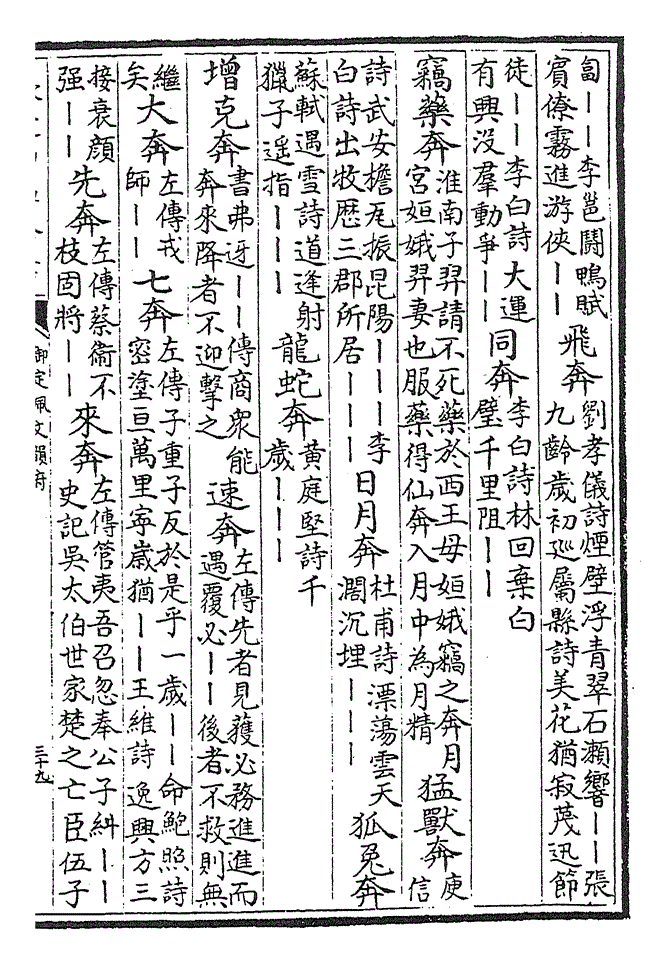 匐丨丨李邕鬭鴨賦
賓僚霧進游俠丨丨
飛奔
劉孝儀詩煙壁浮青翠石瀨響丨丨張
九齡歲初巡屬縣詩美花猶寂茂迅節
徒丨丨李白詩大運
有興沒羣動爭丨丨
同奔
李白詩林回棄白
璧千里阻丨丨
竊藥奔
淮南子羿請不死藥於西王母姮娥竊之奔月
宮姮娥羿妻也服藥得仙奔入月中為月精
猛獸奔
庾
信
詩武安檐瓦振昆陽丨丨丨李
白詩出牧歷三郡所居丨丨丨
日月奔
杜甫詩漂蕩雲天
濶沉埋丨丨丨
狐兔奔
蘇軾遇雪詩道逢射
獵子遥指丨丨丨
龍蛇奔
黃庭堅詩千
歲丨丨丨
增克奔
書弗迓丨丨傳商衆能
奔來降者不迎擊之
速奔
左傳先者見獲必務進進而
遇覆必丨丨後者不救則無
繼
矣
大奔
左傳戎
師丨丨
七奔
左傳子重子反於是乎一歲丨丨命鮑照詩
密塗亘萬里寧歲猶丨丨王維詩逸興方三
接衰顏
强丨丨
先奔
左傳蔡衞不
枝固將丨丨
來奔
左傳管夷吾召忽奉公子糾丨丨
史記吳太伯世家楚之亡臣伍子
御定佩文韻府
三十九